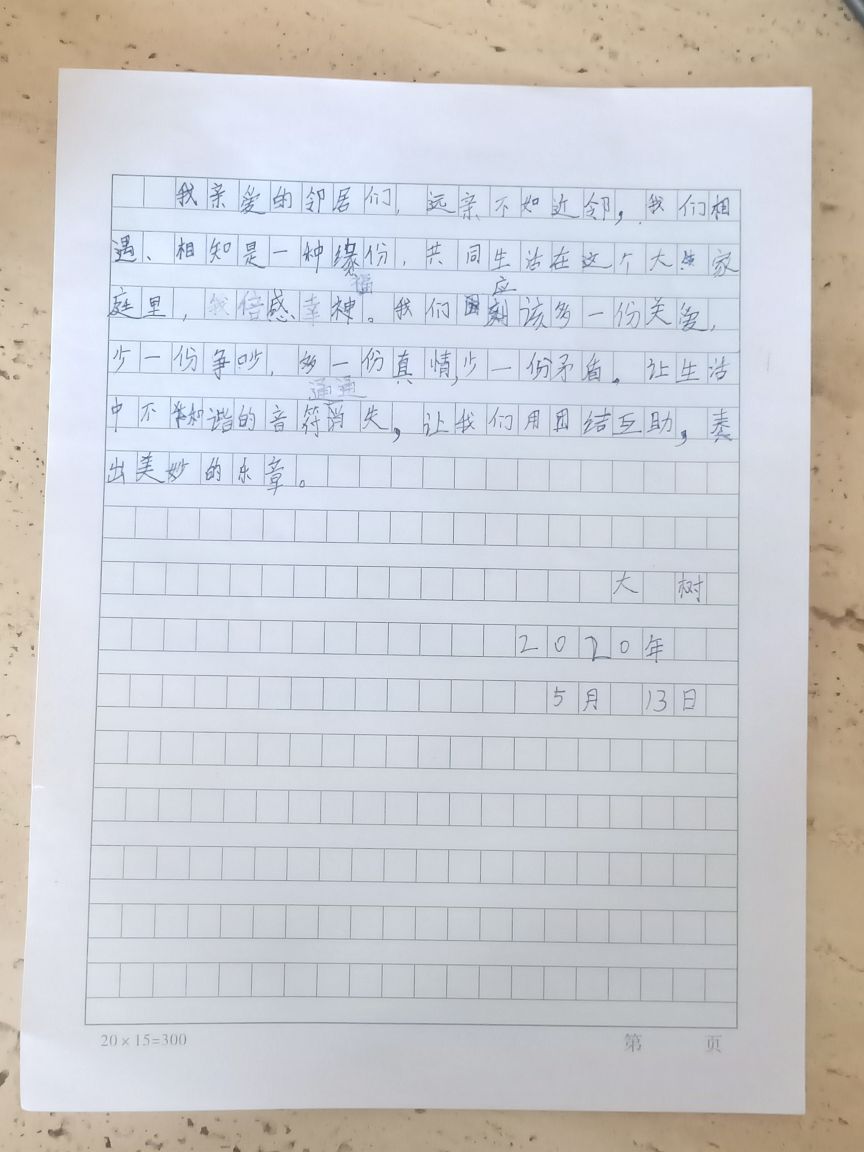 我亲爱的邻居们，远亲不如近邻，我们相
遇、相知是一种缘份，共同生活在这个大家
福 应
庭里，我倍感幸神。我们该多一份关爱，
少一份争吵，多一份真情，少一份矛盾。让生活
通通
中不和谐的音符消失，让我们用团结互助，奏
出美妙的乐章。
大 树
2020年
5月 13日
20×15=300 第 页